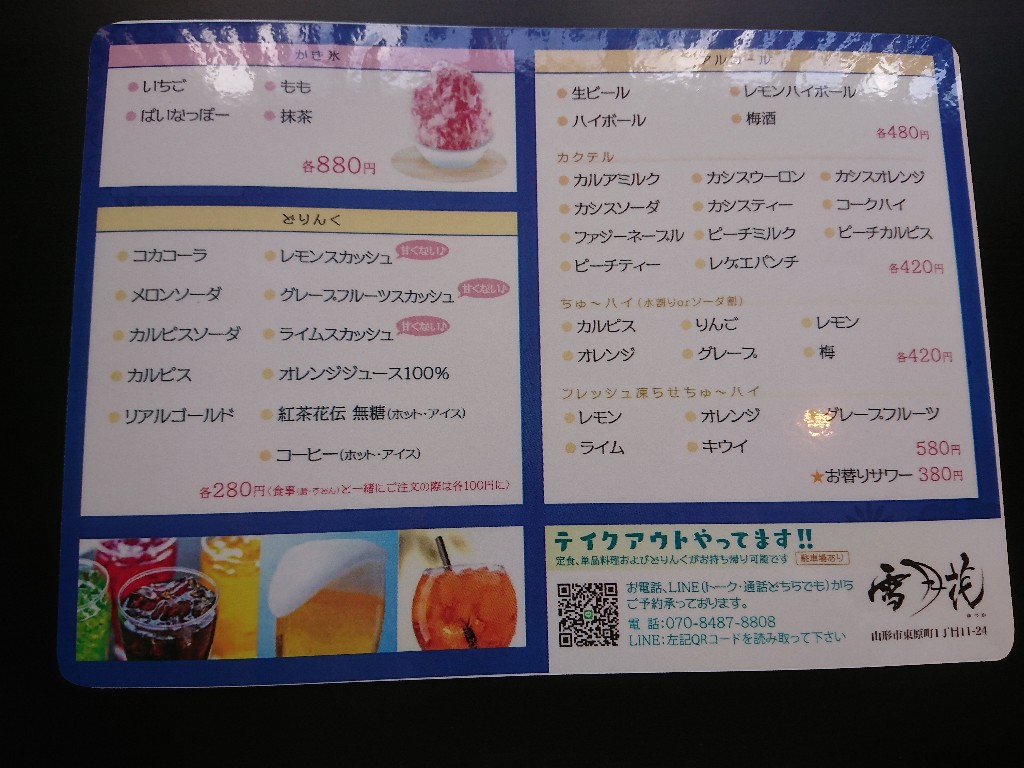 かき氷
いちご
もも
ぱいなっぽー
抹茶
各880円
どりんく
コカコーラ
レモンスカッシュ 甘くない♪
メロンソーダ
グレープフルーツスカッシュ 甘くない♪
カルピスソーダ
ライムスカッシュ 甘くない♪
カルピス
オレンジジュース100%
リアルゴールド
紅茶花伝 無糖(ホット・アイス)
コーヒー(ホット・アイス)
各280円〈食事(麺・うどん)と一緒にご注文の際は各100円に〉
アルコール
生ビール
レモンハイボール
ハイボール
梅酒
各480円
カクテル
カルアミルク
カシスウーロン
カシスオレンジ
カシスソーダ
カシスティー
コークハイ
ファジーネーブル
ピーチミルク
ピーチカルピス
ピーチティー
レゲエパンチ
各420円
ちゅ〜ハイ(水割りorソーダ割)
カルピス
りんご
レモン
オレンジ
グレープ
梅
各420円
フレッシュ凍らせちゅ〜ハイ
レモン
オレンジ
グレープフルーツ
ライム
キウイ
580円
★お替りサワー 380円
テイクアウトやってます!!
定食、単品料理およびどりんくがお持ち帰り可能です 駐車場あり
お電話、LINE(トーク・通話どちらでも)から
ご予約承っております。
電 話:070-8487-8808
LINE:左記QRコードを読み取って下さい
雪月花
山形市東原町1丁目11-24